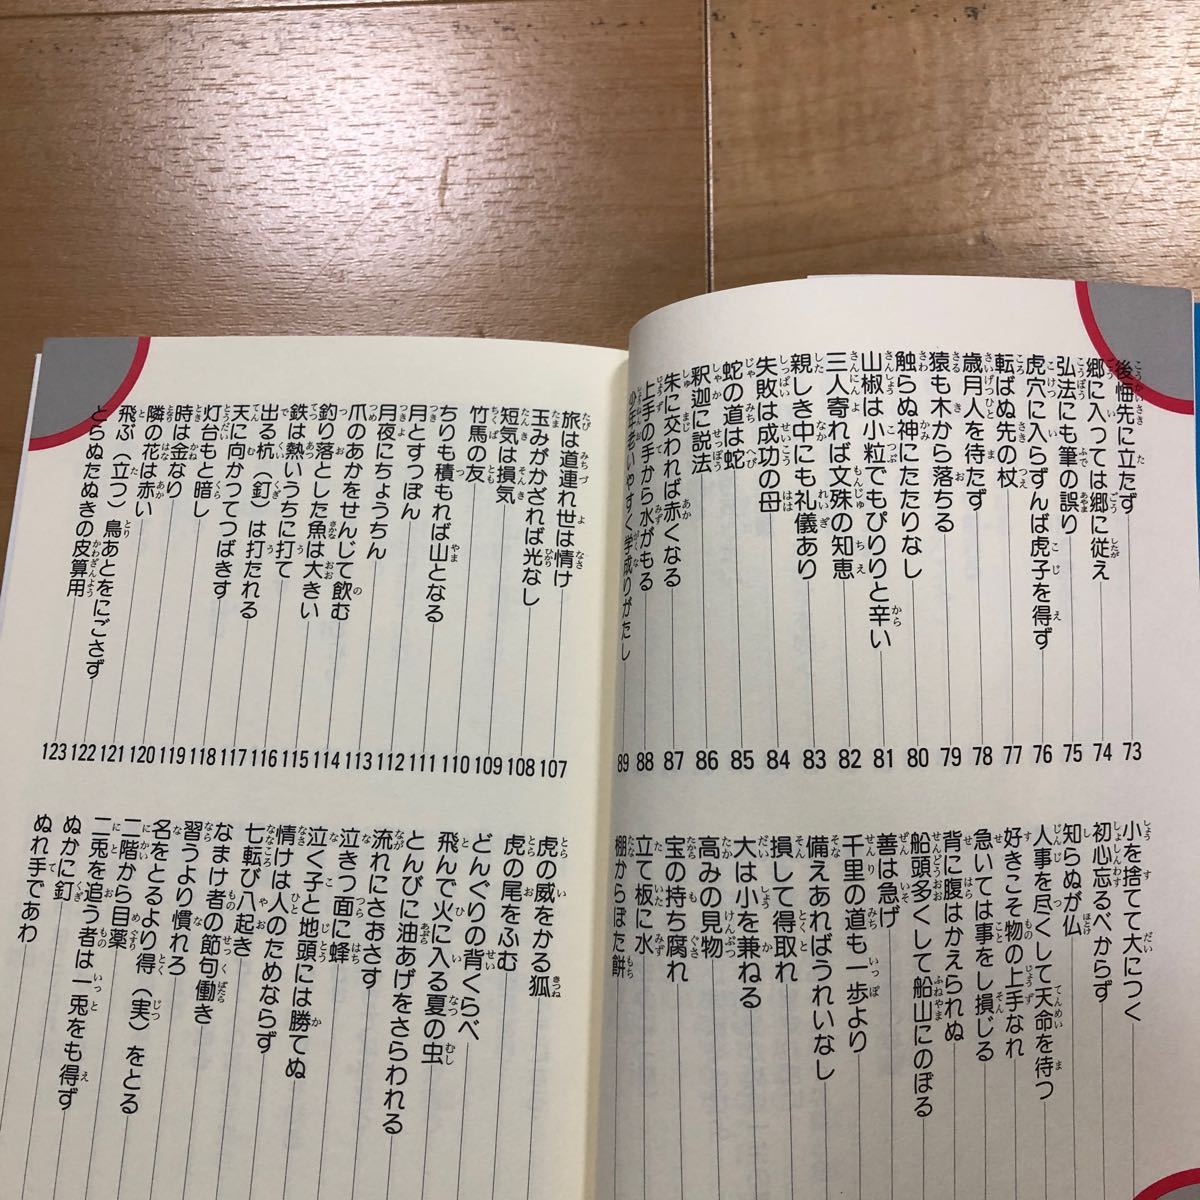 後悔先に立たず 73
郷に入っては郷に従え 74
弘法にも筆の誤り 75
虎穴に入らずんば虎子を得ず 76
転ばぬ先の杖 77
歳月人を待たず 78
猿も木から落ちる 79
触らぬ神にたたりなし 80
山椒は小粒でもぴりりと辛い 81
三人寄れば文殊の知恵 82
親しき中にも礼儀あり 83
失敗は成功の母 84
蛇の道は蛇 85
釈迦に説法 86
朱に交われば赤くなる 87
上手の手から水がもる 88
少年老いやすく学成りがたし 89
小を捨てて大につく
初心忘るべからず
知らぬが仏
人事を尽くして天命を待つ
好きこそ物の上手なれ
急いては事をし損じる
背に腹はかえられぬ
船頭多くして船山にのぼる
善は急げ
千里の道も一歩より
備えあればうれいなし
損して得取れ
大は小を兼ねる
高みの見物
宝の持ち腐れ
立て板に水
棚からぼた餅
旅は道連れ世は情け 107
玉みがかざれば光なし 108
短気は損気 109
竹馬の友 110
ちりも積もれば山となる 111
月とすっぽん 112
月夜にちょうちん 113
爪のあかをせんじて飲む 114
釣り落とした魚は大きい 115
鉄は熱いうちに打て 116
出る杭（釘）は打たれる 117
天に向かってつばきす 118
灯台もと暗し 119
時は金なり 120
隣の花は赤い 121
飛ぶ（立つ）鳥あとをにごさず 122
とらぬたぬきの皮算用 123
虎の威をかる狐
虎の尾をふむ
どんぐりの背くらべ
飛んで火に入る夏の虫
とんびに油あげをさらわれる
流れにさおさす
泣きつ面に蜂
泣く子と地頭には勝てぬ
情けは人のためならず
七転び八起き
なまけ者の節句働き
習うより慣れろ
名をとるより得（実）をとる
二階から目薬
二兎を追う者は一兎をも得ず
ぬかに釘
ぬれ手であわ